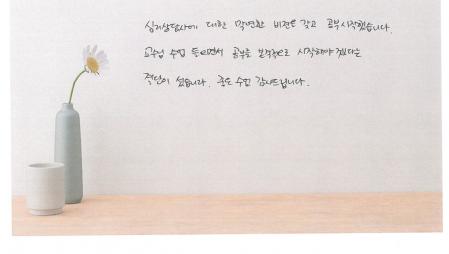 심리상담사에 대한 막연한 비전을 갖고 공부시작했습니다.
교수님 수업 들으면서 공부를 본격적으로 시작해야 겠다는
결단이 섰습니다. 좋은 수업 감사드립니다.